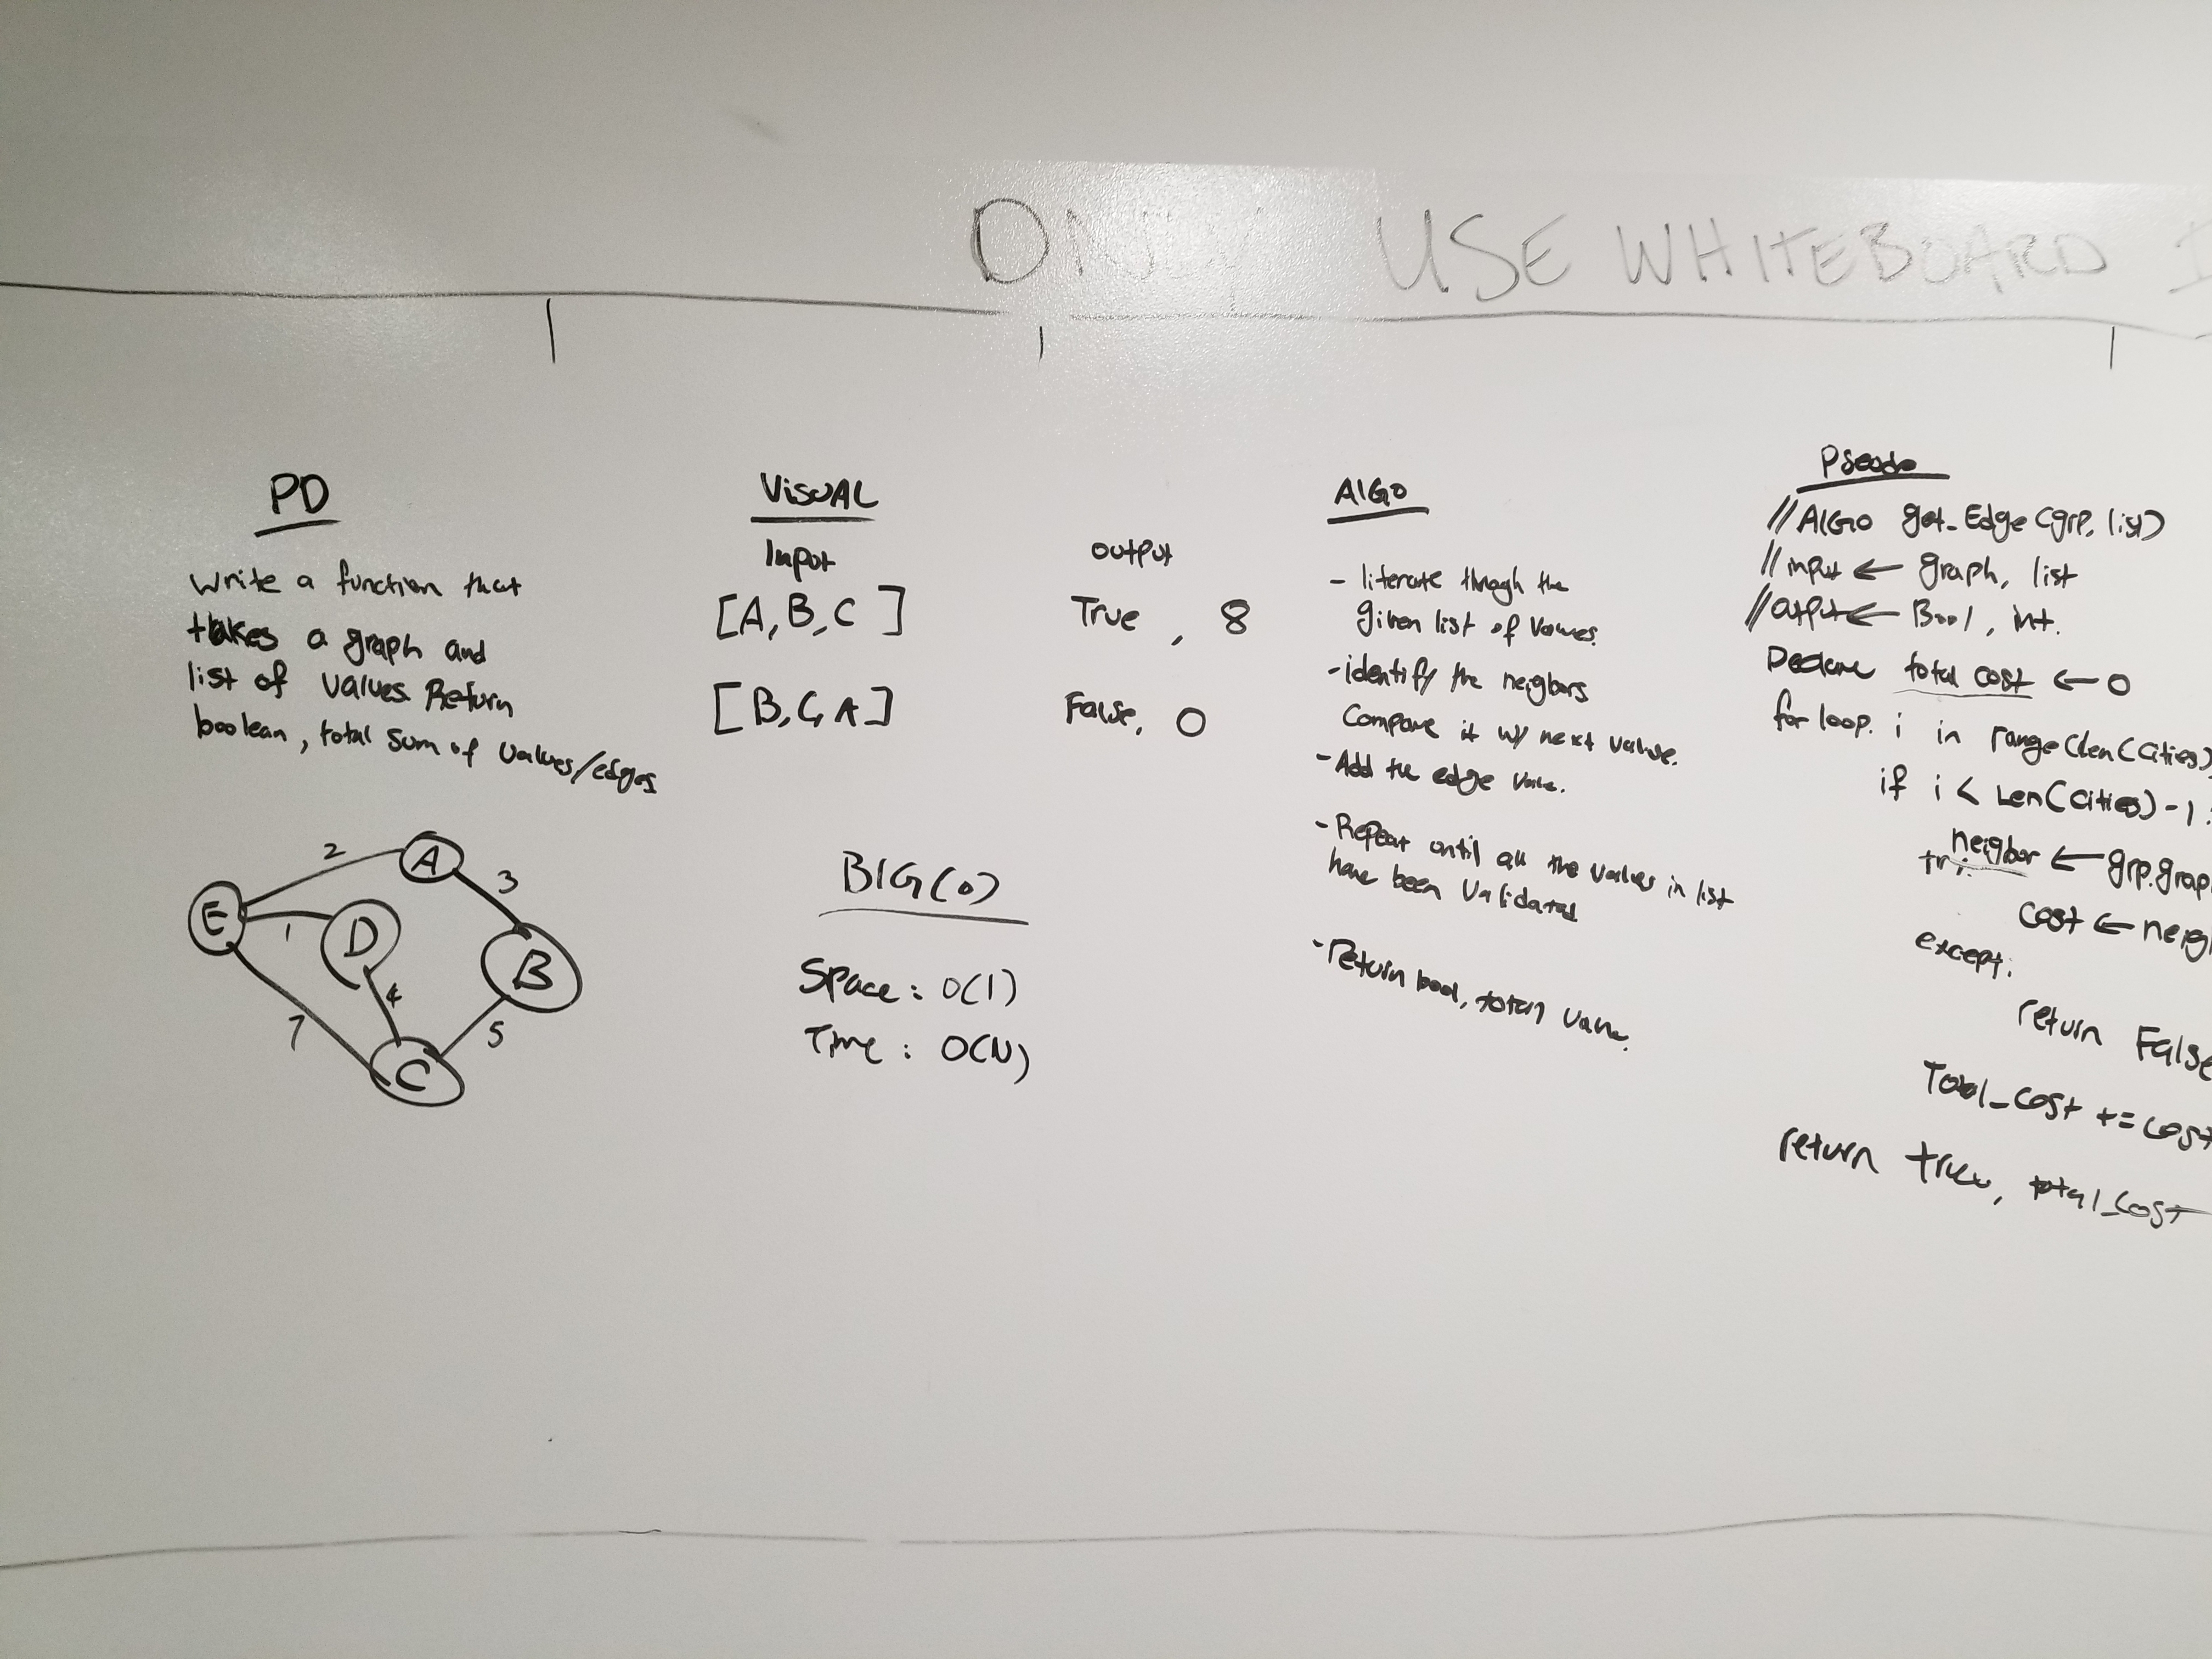 ONLY USE WHITEBOARD I
PD
Write a function that
takes a graph and
list of values Return
boolean, total sum of values/edges
2
A
3
E
1
D
B
4
7
5
C
VISUAL
Input
output
[A, B, C ]
True , 8
[B, C, A]
False, 0
BIG(O)
Space : O(1)
Time : O(N)
AlGo
- literate through the
given list of values.
- identify the neigbors
Compare it w/ next value.
- Add the edge value.
- Repeat until all the values in list
have been Validated
- return bool, total value.
Pseodo
// AlGo get_Edge (grp, list)
// input ← graph, list
// output ← Bool, int.
Declare total cost ← 0
for loop. i in range(len(cities)
if i < Len(cities) -1 :
try: neigbor ← grp.grap
cost ← neig
except:
return False
Total_cost += cost
return true, total_cost